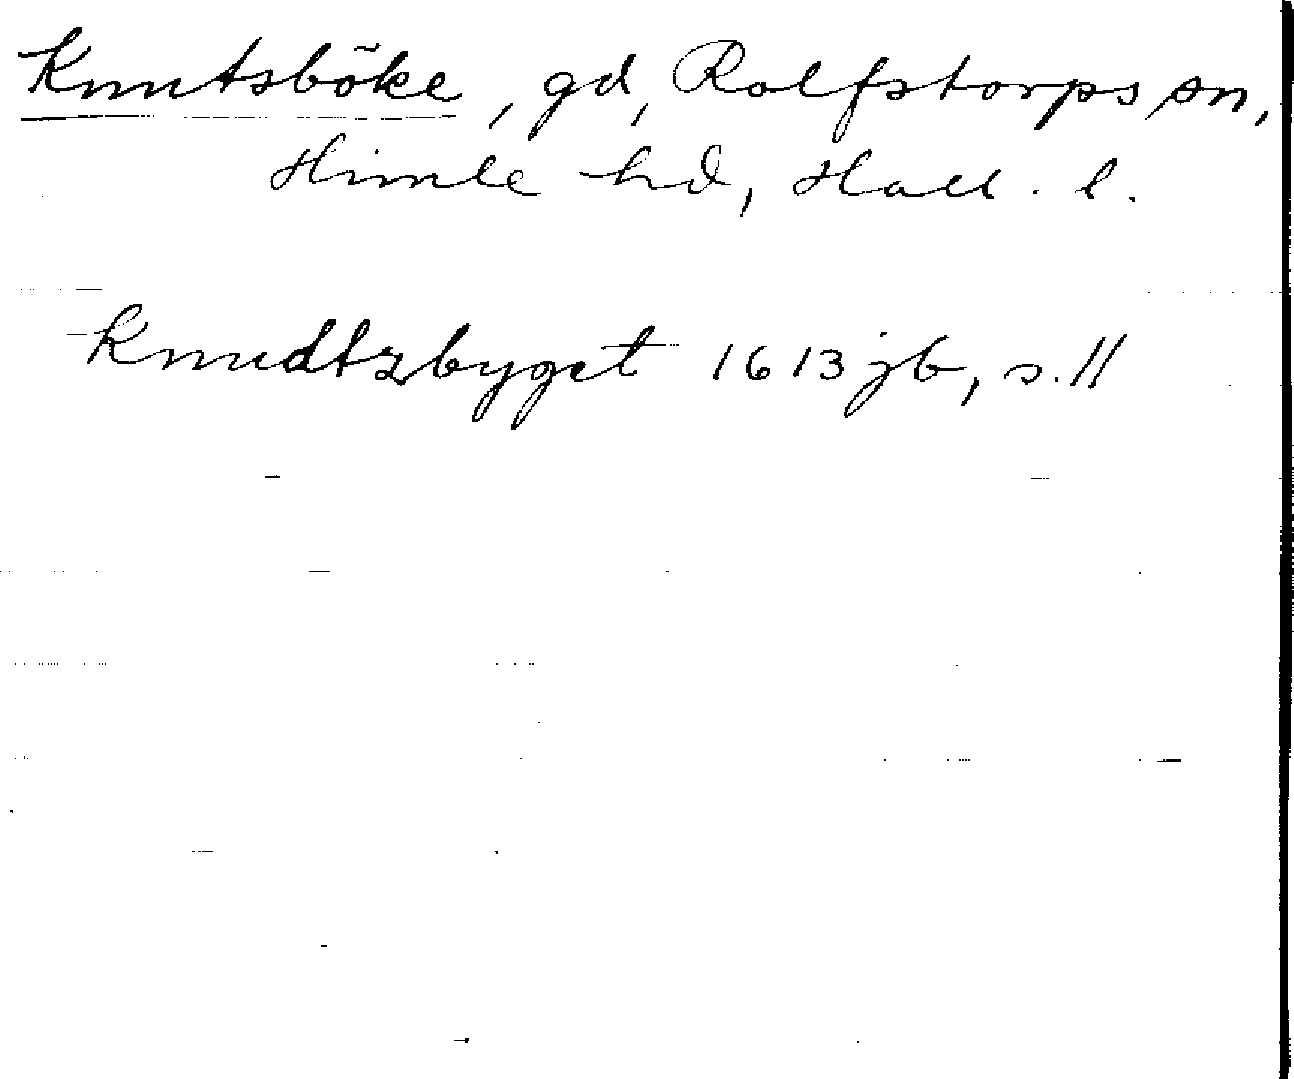 Knutsböke, gd, Rolfstorps sn,
Himle hd, Hall. l.
Knudtzbyget 1613 jb, s. 11